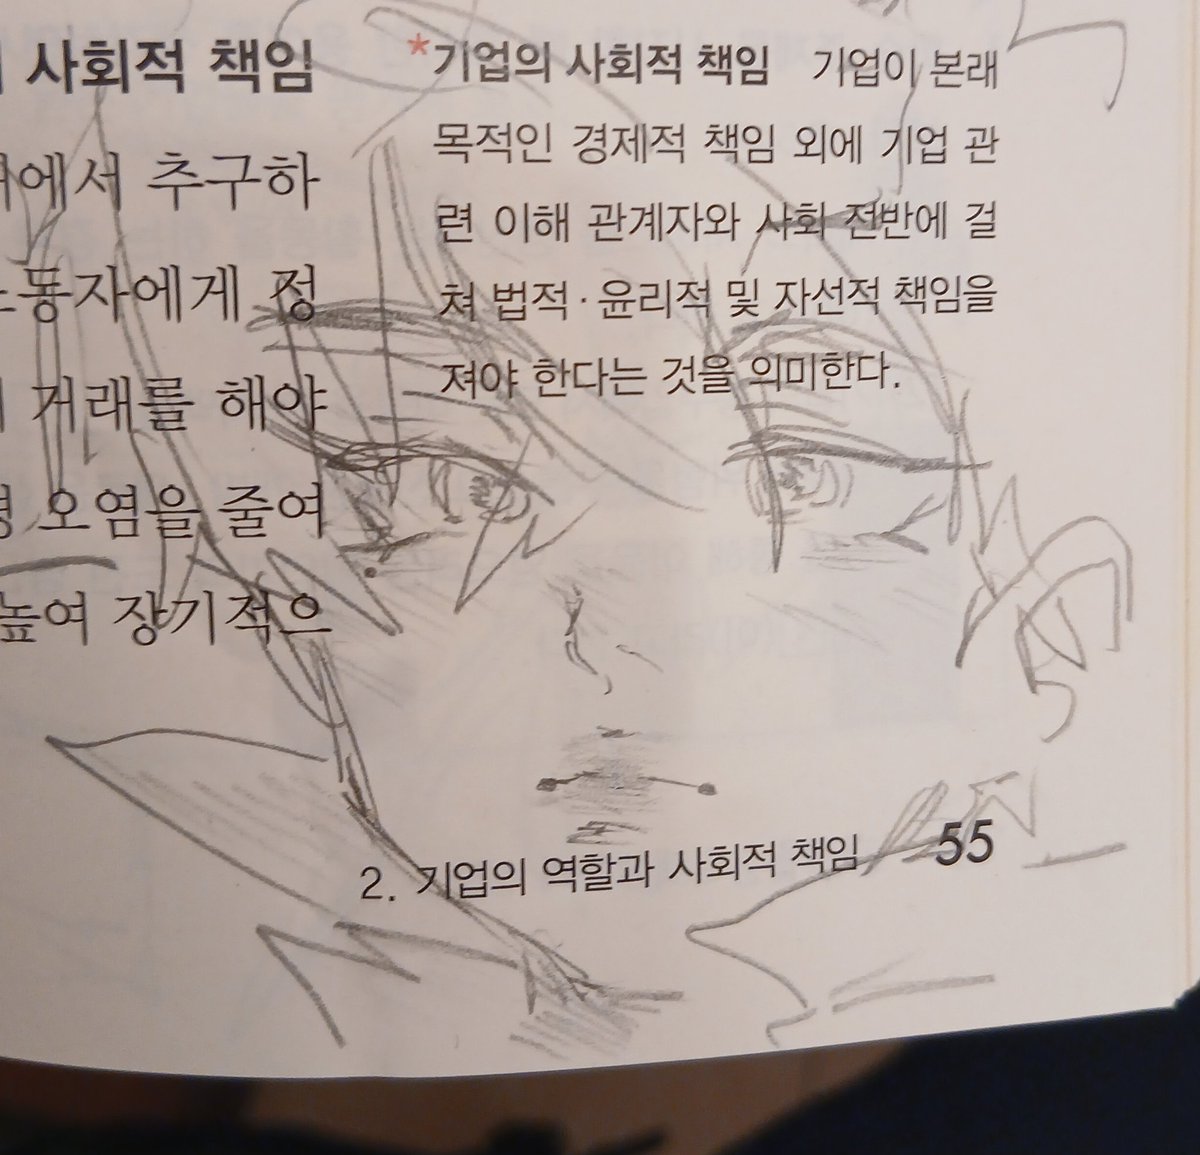 사회적 책임
에서 추구하
동자에게 정
거래를 해야
오염을 줄여
높여 장기적으
*기업의 사회적 책임 기업이 본래
목적인 경제적 책임 외에 기업 관
련 이해 관계자와 사회 전반에 걸
쳐 법적·윤리적 및 자선적 책임을
져야 한다는 것을 의미한다.
2. 기업의 역할과 사회적 책임 55